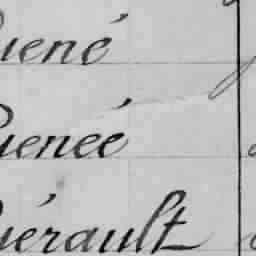 uené
uenéé
uérault